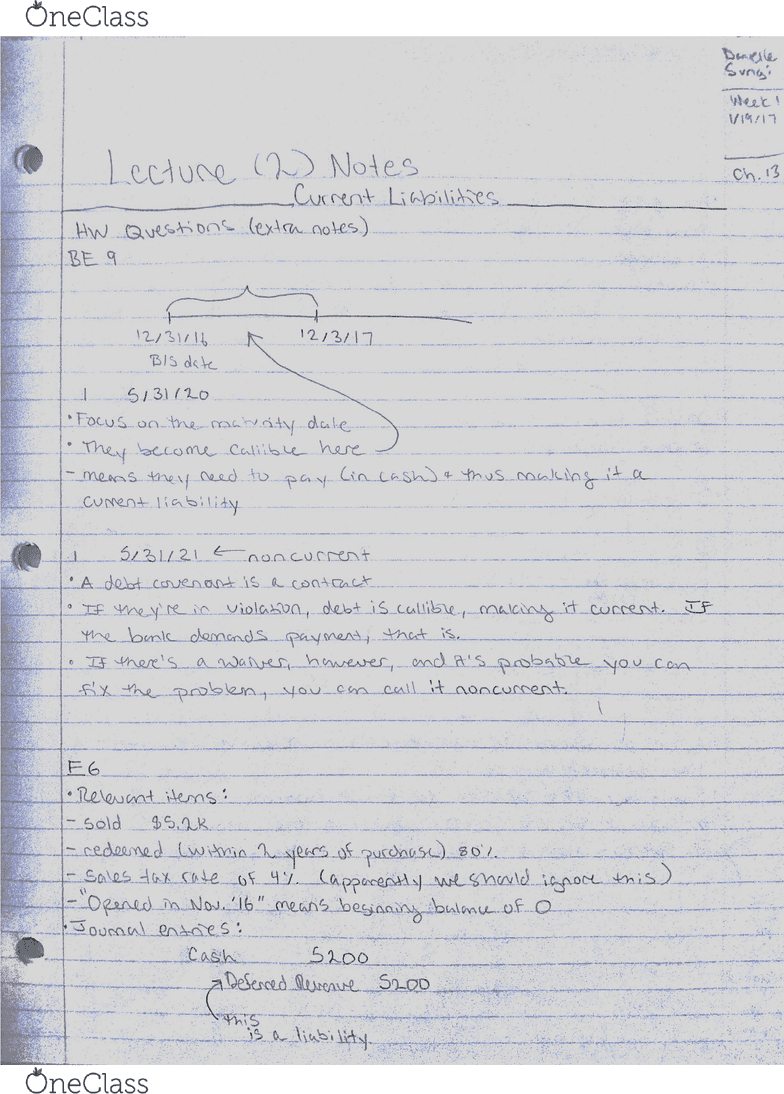 OneClass
Danielle
Week 1
1/19/17
Ch. 13
Lecture (2) Notes
Current Liabilities
HW Questions (extra notes)
BE 9
12/31/16 12/3/17
B/S date
1 5/31/20
• Focus on the maturity date
• They become callible here
- means they need to pay (in cash) & thus making it a
current liability
1 5/31/21 ← noncurrent
• A debt covenant is a contract
• If they're in violation, debt is callible, making it current. If
the bank demands payment, that is.
• If there's a waiver, however, and it's probable you can
fix the problem, you can call it noncurrent.
E6
• Relevant items:
- sold $5.2k
- redeemed (within 2 years of purchase) 80%
- sales tax rate of 4% (apparently we should ignore this)
- "Opened in Nov. '16" means beginning balance of 0
• Journal entries:
Cash 5200
Deferred Revenue 5200
this
is a liability
OneClass